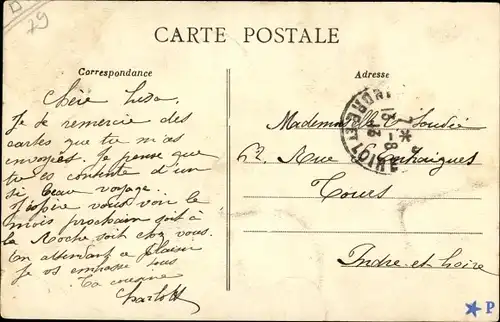 29
CARTE POSTALE
Correspondance
Adresse
Chère
Je te remercie des
cartes que tu m'as
envoyés. Je pense que
tu es contente d'un
si beau voyage.
J'espère vous voir le
mois prochain soit à
la Roche soit chez vous.
En attendant ce plaisir
Je vs embrasse tous
Ta cousine
Charlott
Mademoiselle
Rue
Tours
Indre-et-Loire
INDRE ET LOIRE
P